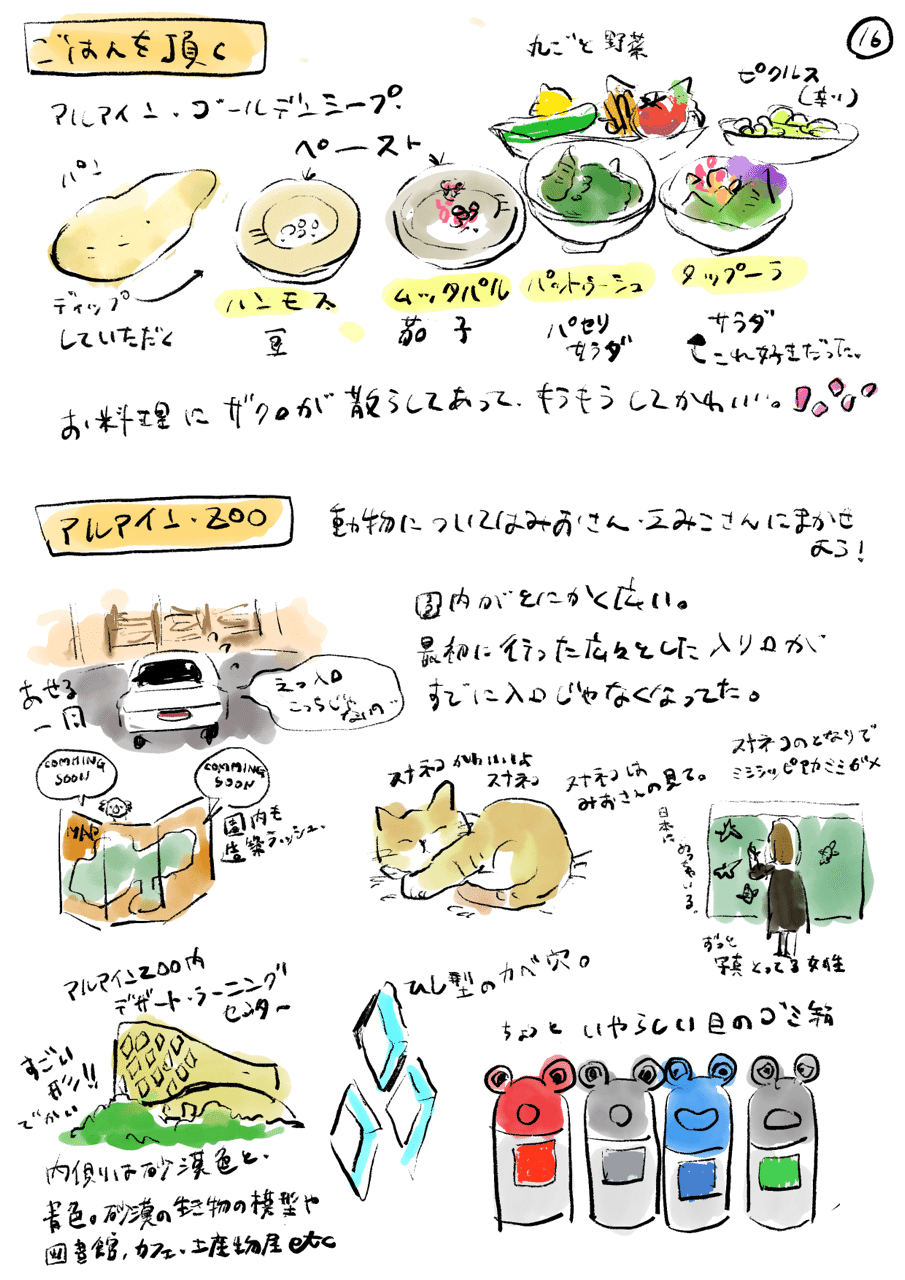 ごはんを頂く
16
アルアイン・ゴールデンシープ.
丸ごと野菜
ピクルス
(辛い)
パン
ペースト
ディップ
していただく
ハンモス
豆
ムッタバル
茄子
パットゥーシュ
パセリ
サラダ
タップーラ
サラダ
これ好きだった。
お料理にザクロが散らしてあって、もうもうしてかわいい。
アルアイン・ZOO
動物についてはみおさん・えみこさんにまかせ
よう!
園内がとにかく広い。
最初に行った広々とした入り口が
すでに入口じゃなくなってた。
あせる
一同
えっ入口
こっちじゃ
ないの…
COMMING
SOON
COMMING
SOON
MAP
園内も
建築ラッシュ、
スナネコかわいいよ
スナネコ
スナネコは
みおさんの見て。
スナネコのとなりで
ミシシッピアカミミガメ
日本に
めっちゃいる。
ずっと
写真とってる女性
アルアインZOO内
デザート・ラーニング
センター
すごい
形!!
でかい
内側は砂漠色と、
青色。砂漠の生き物の模型や
図書館、カフェ・土産物屋etc
ひし型のカベ穴。
ちょっといやらしい目のゴミ箱